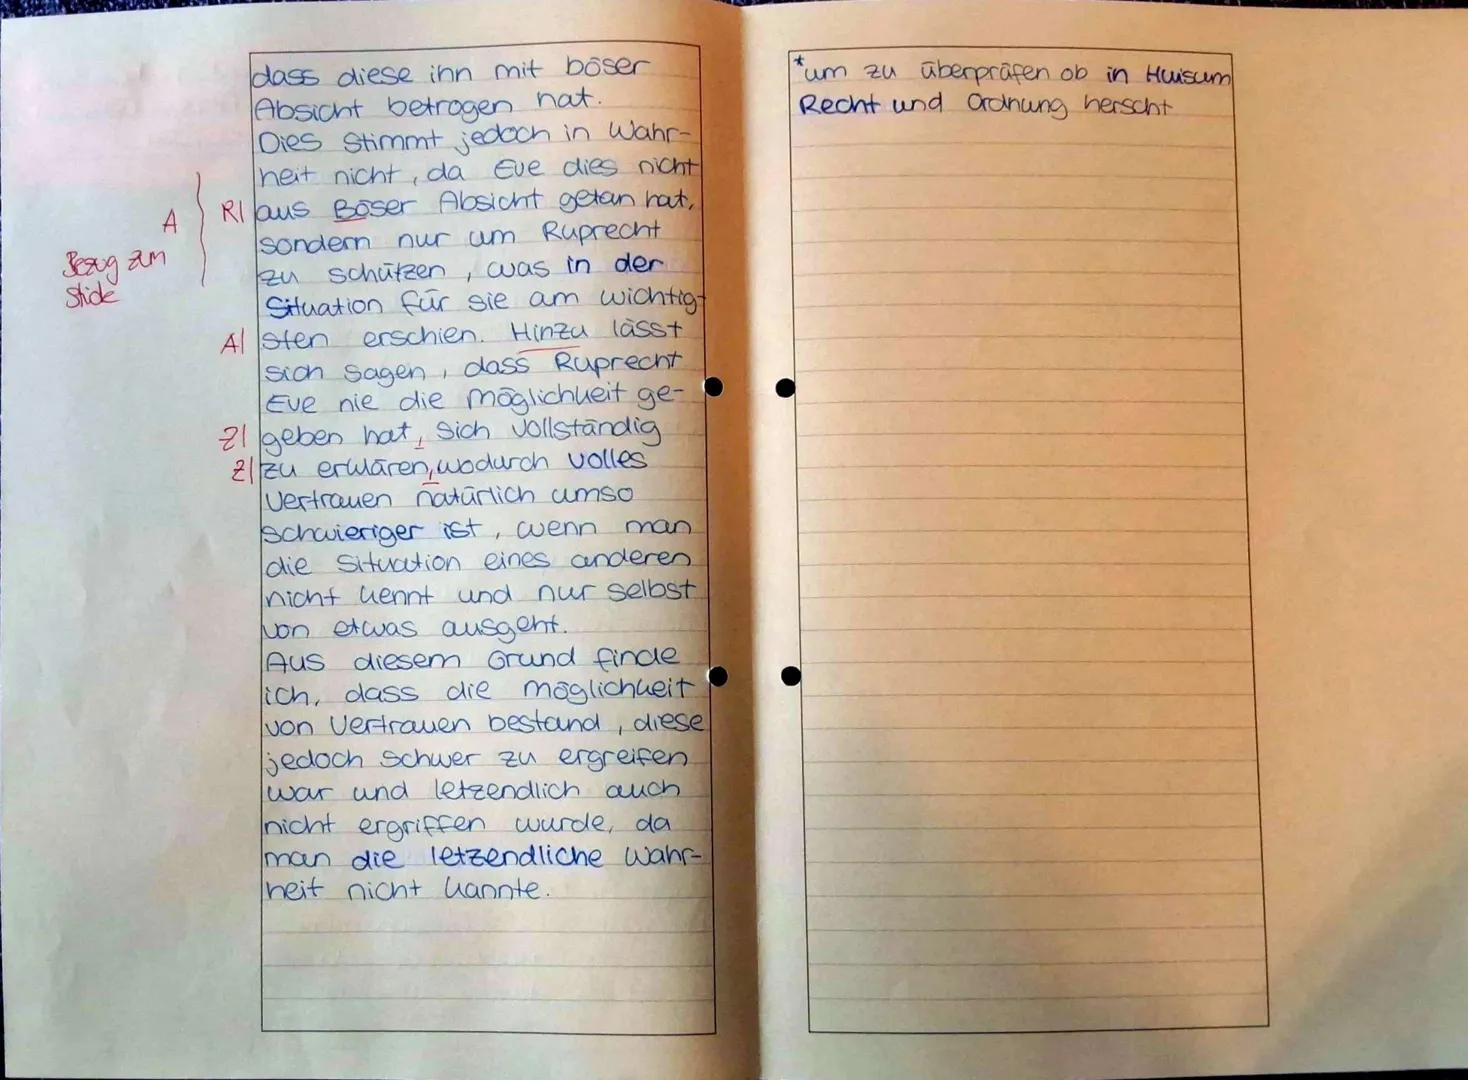 dass diese ihn mit böser
Absicht betrogen hat.
Dies stimmt jedoch in Wahr-
heit nicht, da Eve dies nicht
R| aus Böser Absicht getan hat,
A
sondern nur um Ruprecht
Bezug zum
zu schützen, was in der
Situation für sie am wichtig-
A| sten erschien. Hinzu lässt
sich sagen, dass Ruprecht
Eve nie die möglichkeit ge-
Z| geben hat, sich vollständig
Z| zu erklären, wodurch volles
Vertrauen natürlich umso
schwieriger ist, wenn man
die Situation eines anderen
nicht kennt und nur selbst
von etwas ausgeht.
Aus diesem Grund finde
ich, dass die möglichkeit
von Vertrauen bestand, diese
jedoch schwer zu ergreifen
war und letzendlich auch
nicht ergriffen wurde, da
man die letzendliche Wahr-
heit nicht kannte.
*um zu überprüfen ob in Huisum
Recht und Ordnung herscht